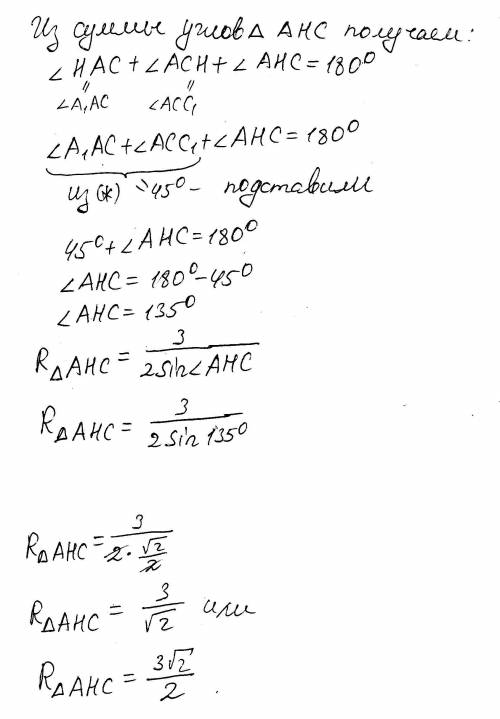 Из суммы углов △ AHC получаем:
∠HAC + ∠ACH + ∠AHC = 180°
∠A₁AC ∠ACC₁
∠A₁AC + ∠ACC₁ + ∠AHC = 180°
из (*) = 45° - подставим
45° + ∠AHC = 180°
∠AHC = 180° - 45°
∠AHC = 135°
R△AHC = 3 / 2sin∠AHC
R△AHC = 3 / 2sin 135°
R△AHC = 3 / 2·√2/2
R△AHC = 3/√2 или
R△AHC = 3√2/2.